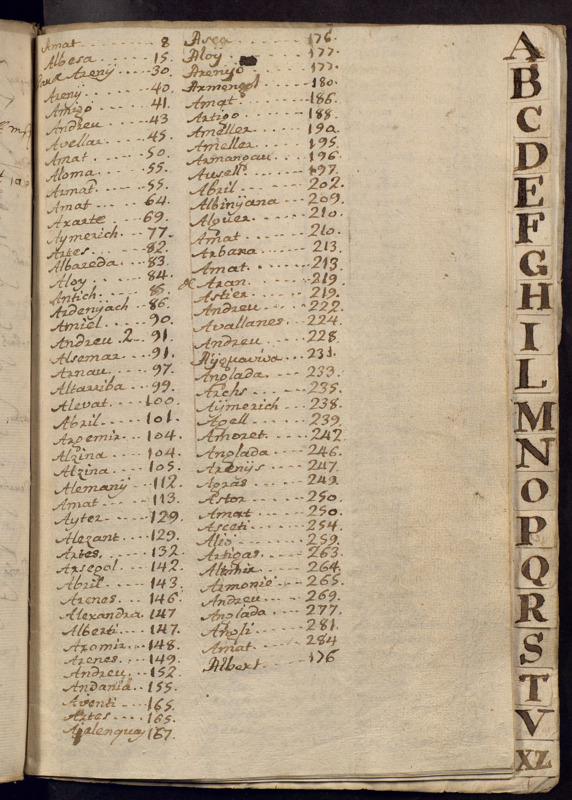 Amat 8
Albesa 15.
Areny 30.
Areny 40.
Amigo 41.
Andreu 43
Avellar 45.
Amat 50.
Aloma 55.
Armat 55.
Amat 64.
Axarte 69.
Aymerich 77.
Artes 82.
Albareda 83.
Aloy 84.
Antich 85.
Ardenyach 86.
Amiel 90.
Andreu 2 91.
Alsemar 91.
Arnau 97.
Altarriba 99.
Alevat 100.
Abril 101.
Argemir 104.
Alzina 104.
Alzina 105.
Alemany 112.
Amat 113.
Ayter 129.
Alezant 129.
Artes 132.
Arsegol 142.
Abril 143.
Arenes 146.
Alexandra 147
Alberti 147.
Aromir 148.
Arenes 149.
Andreu 152
Andania 155.
Aventi 165.
Artes 165.
167.
Asca 176.
Aloy 177.
Arenyo 177.
Armengol 180.
Amat 186.
Artigo 188.
Ameller 190.
Ameller 195.
Armangau 196
Ausell 197.
Abril 202.
Albinyana 209.
Alguer 210.
Amat 210.
Arbana 213.
Amat 213.
Aran 219.
Astier 219.
Andreu 222.
Avallanes 224.
Andreu 228.
Ayguaviva 231.
Anglada 233.
Archs 235.
Aymerich 238.
Agell 239.
Amoret 242.
Anglada 246.
Arenys 247.
Agras 249.
Astor 250.
Amat 250.
Asceti 254.
Alió 259.
Artigas 263.
Altimir 264.
Armonie 265.
Andreu 269.
Anglada 277.
Angli 281.
Amat 284
Albert 176
A
B
C
D
E
F
G
H
I
L
M
N
O
P
Q
R
S
T
V
XZ